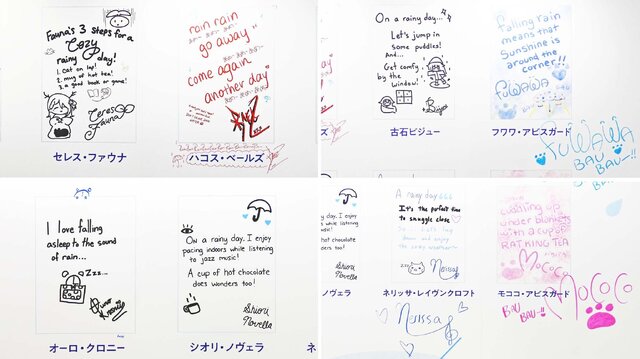 Fauna's 3 steps for a
Cozy
rainy day!
1. Cat on lap!
2. mug of hot tea!
3. a good book or game!
Ceres
Fauna
セレス・ファウナ
rain rain
go away
come again
another day
BAE
ハコス・ベールズ
On a rainy day...
Let's jump in
some puddles!
And...
Get comfy
by the
window!
Bijou
古石ビジュー
falling rain
means that
Sunshine is
around the
corner!!
FUWAWA
フワワ・アビスガード
FUWAWA
BAU
BAU-!!
I love falling
asleep to the sound
of rain...
Zzz...
Ouro
Kronii
オーロ・クロニー
On a rainy day, I enjoy
pacing indoors while listening
to jazz music!
A cup of hot chocolate
does wonders too!
Shiori
Novella
シオリ・ノヴェラ
ネ
y day, I enjoy
while listening
music!
hot chocolate
too!
Shiori
Novella
ノヴェラ
A rainy day
It's the perfect time
to snuggle close
Nerissa
ネリッサ・レイヴンクロフト
Nerissa
cuddling up
under blankets
with a cup of
RATKING TEA
MOCOCO
モココ・アビスガード
MOCOCO
BAU
BAU-!!